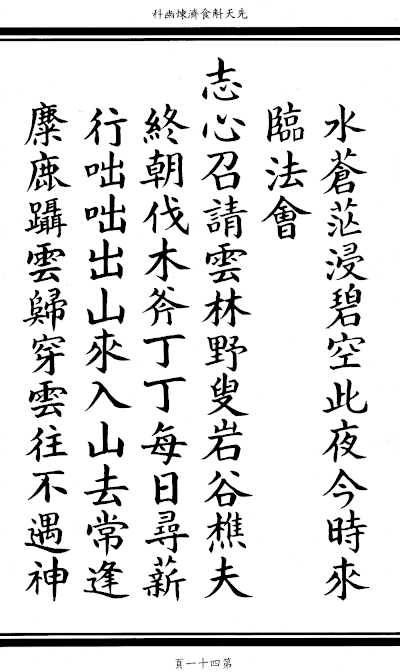 先天斛食濟煉幽科
水蒼茫浸碧空此夜今時來
臨法會
志心召請雲林野叟岩谷樵夫
終朝伐木斧丁丁每日尋薪
行咄咄出山來入山去常逢
麋鹿躡雲歸穿雲往不遇神
第四十一頁